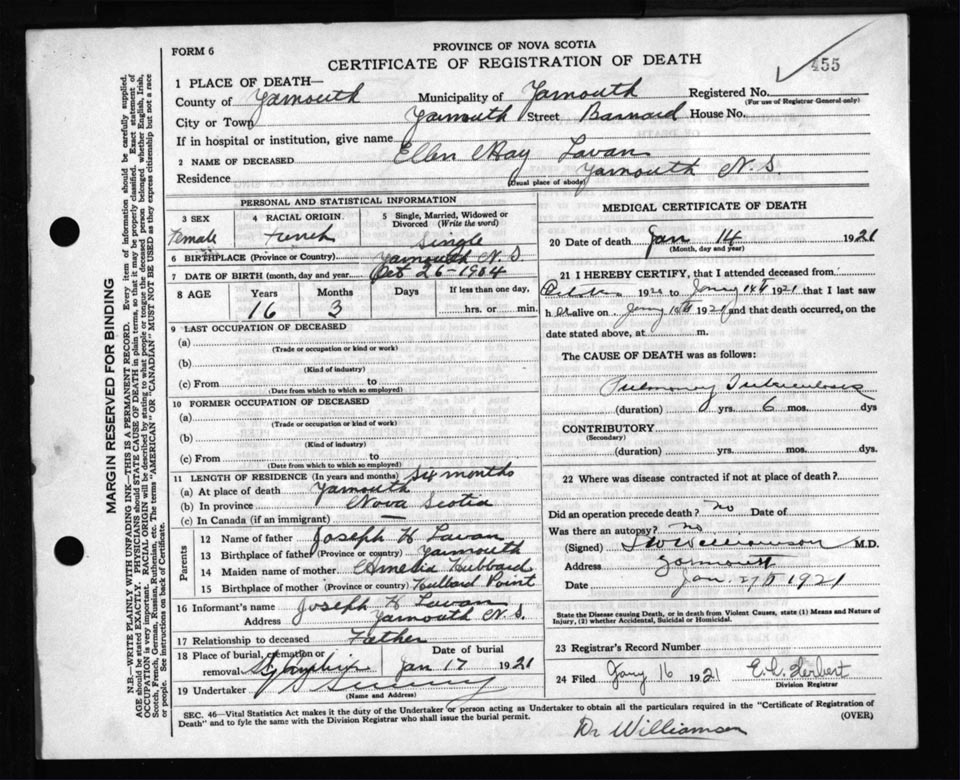 FORM 6
PROVINCE OF NOVA SCOTIA
CERTIFICATE OF REGISTRATION OF DEATH
455
1 PLACE OF DEATH—
County of Yarmouth Municipality of Yarmouth Registered No.
(For use of Registrar General only)
City or Town Yarmouth Street Barnard House No.
If in hospital or institution, give name
2 NAME OF DECEASED Ellen May Lavan
Residence Yarmouth N.S.
(Usual place of abode)
PERSONAL AND STATISTICAL INFORMATION
3 SEX Female
4 RACIAL ORIGIN. French
5 Single, Married, Widowed or Divorced (Write the word) Single
6 BIRTHPLACE (Province or Country) Yarmouth N.S.
7 DATE OF BIRTH (month, day and year) Oct 26-1904
8 AGE Years 16 Months 3 Days If less than one day, hrs. or min.
9 LAST OCCUPATION OF DECEASED
(a)
(Trade or occupation or kind or work)
(b)
(Kind of industry)
(c) From to
(Date from which to which so employed)
10 FORMER OCCUPATION OF DECEASED
(a)
(Trade or occupation or kind of work)
(b)
(Kind of industry)
(c) From to
(Date from which to which so employed)
11 LENGTH OF RESIDENCE (In years and months) Six months
(a) At place of death Yarmouth
(b) In province Nova Scotia
(c) In Canada (if an immigrant) —
Parents
12 Name of father Joseph H Lavan
13 Birthplace of father (Province or country) Yarmouth
14 Maiden name of mother Amelia Hubbard
15 Birthplace of mother (Province or country) Hubbard Point
16 Informant's name Joseph H Lavan
Address Yarmouth N.S.
17 Relationship to deceased Father
18 Place of burial, cremation or removal Date of burial Jan 17 1921
19 Undertaker
(Name and Address)
MEDICAL CERTIFICATE OF DEATH
20 Date of death Jan 14 1921
(Month, day and year)
21 I HEREBY CERTIFY, that I attended deceased from
1920 to 14th 1921 that I last saw
h er alive on 1921 and that death occurred, on the
date stated above, at m.
The CAUSE OF DEATH was as follows:
Pulmonary Tuberculosis
(duration) yrs. 6 mos. dys
CONTRIBUTORY
(Secondary)
(duration) yrs. mos. dys.
22 Where was disease contracted if not at place of death?
Did an operation precede death? no Date of
Was there an autopsy? no
(Signed) Williamson M.D.
Address Yarmouth
Date Jan. 1921
State the Disease causing Death, or in death from Violent Causes, state (1) Means and Nature of Injury, (2) whether Accidental, Suicidal or Homicidal.
23 Registrar's Record Number
24 Filed Jany 16 1921 E.C. Herbert
Division Registrar
SEC. 46—Vital Statistics Act makes it the duty of the Undertaker or person acting as Undertaker to obtain all the particulars required in the "Certificate of Registration of
Death" and to fyle the same with the Division Registrar who shall issue the burial permit. (OVER)
Dr Williamson
MARGIN RESERVED FOR BINDING
N.B.—WRITE PLAINLY WITH UNFADING INK—THIS IS A PERMANENT RECORD. Every item of information should be carefully supplied.
AGE should be stated EXACTLY. PHYSICIANS should STATE CAUSE OF DEATH in plain terms, so that it may be properly classified. Exact statement of
OCCUPATION is very important. RACIAL ORIGIN will be described by stating to what people or tongue the deceased person belonged whether English, Irish,
Scotch, French, German, Russian, Ruthenian, etc. The terms "AMERICAN" or "CANADIAN" MUST NOT BE USED as they express citizenship but not a race
or people. See instructions on back of Certificate.